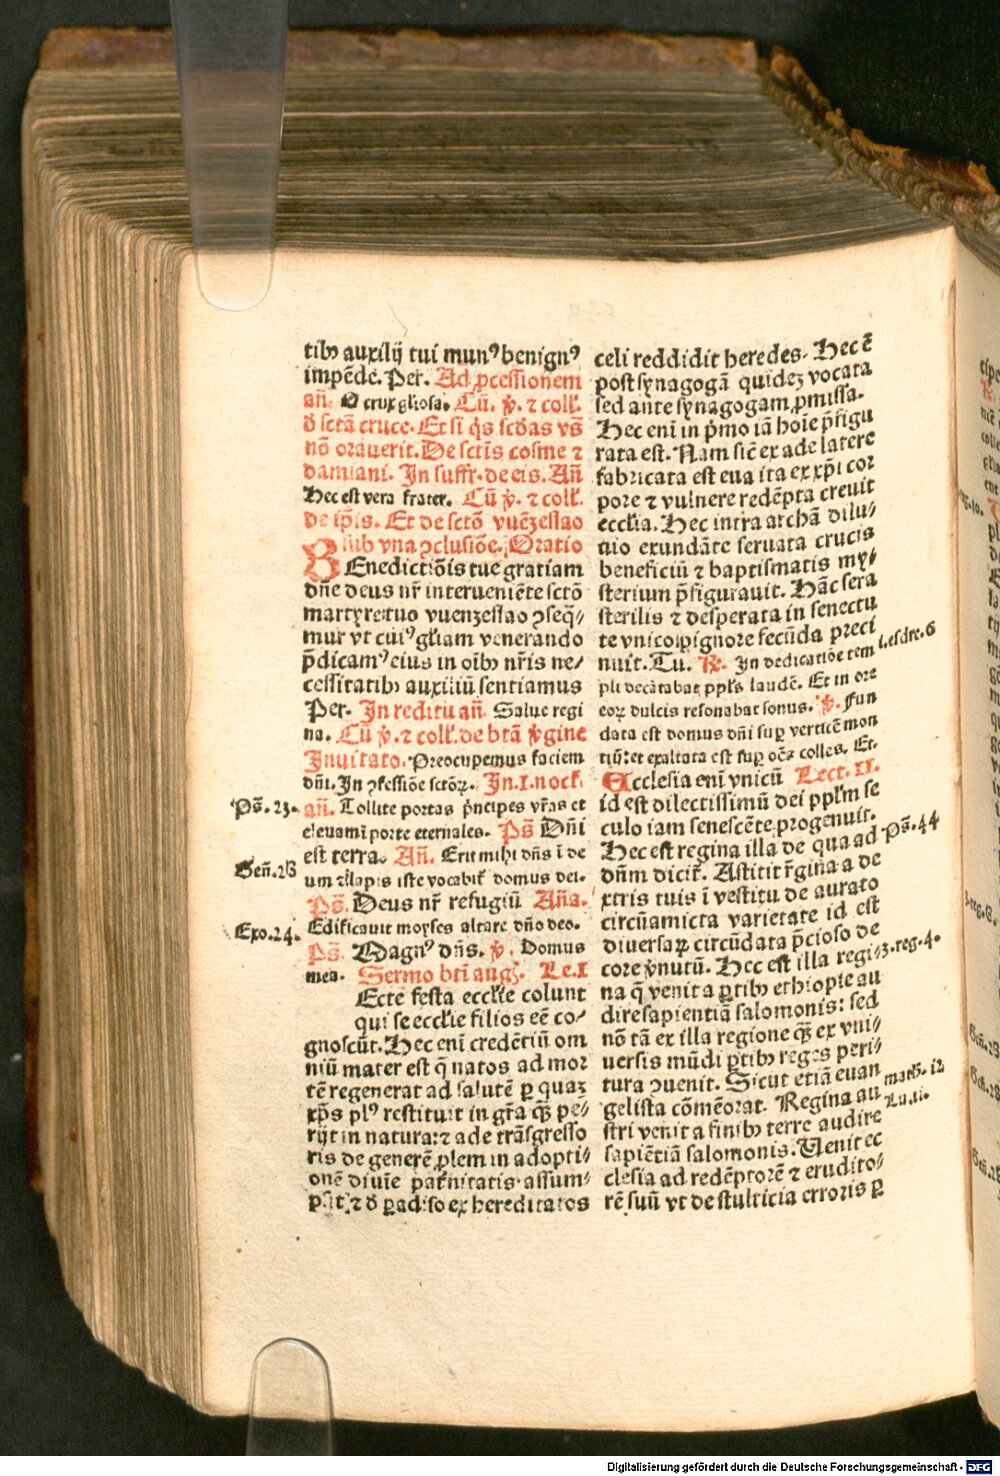 tibꝰ auxilij tui munꝰ benignꝰ
impēde. Per. Ad ꝓcessionem
añ. O crux gliosa. Cū. ꝟ. ⁊ coll.
đ sctā cruce. Et si q̄s scđas vš
nō orauerit. De sctis cosme ⁊
damiani. In suffr. de eis. Añ
Hec est vera frater. Cū ꝟ. ⁊ coll.
de ip̄is. Et de sctō vuēzeslao
sub vna ꝯclusiōe. Oratio
BEnedictiōis tue gratiam
dñe deus nr̄ interueniēte sctō
martyre tuo vuenzeslao ꝯseq̄⸗
mur vt cuiꝰ gl̄iam venerando
p̄dicamꝰ eius in oībꝰ nr̄is ne⸗
cessitatibꝰ auxiliū sentiamus
Per. In reditu añ. Salue regi
na. Cū ꝟ. ⁊ coll. de btā ꝟgine
Inuitato. Preocupemus faciem
dñi. In ꝯfessiōe sctōꝝ. In. I. noct̄.
Ps̄. 23. añ. Tollite portas p̄ncipes vr̄as et
eleuamī porte eternales. Ps̄ Dñi
est terra. Añ. Erit mihi dñs ī de
Geñ. 28
um ⁊ lapis iste vocabit̄ domus dei.
Ps̄. Deus nr̄ refugiū Aña.
Edificauit moyses altare dño deo.
Exo. 24.
Ps̄. Magnꝰ dñs. ꝟ. Domus
mea. Sermo bti augꝯ. Le. I
Ecte festa eccl̄ie colunt
qui se eccl̄ie filios eē co⸗
gnoscūt. Hec enī credētiū om
niū mater est q̄ natos ad mor
tē regenerat ad salutē ꝑ quaꝫ
xp̄s plꝰ restituit in gr̄a qꝫ pe⸗
rijt in natura: ⁊ ade trāsgresso
ris de generē ꝓlem in adopti⸗
onē diuīe pat̄nitatis assum⸗
psit: ⁊ đ ꝑadiso ex hereditatos
celi reddidit heredes. Hec ē
post synagogā quidēꝫ vocata
sed ante synagogam ꝓmissa.
Hec enī in p̄mo iā hoīe p̄figu
rata est. Nam sic̄ ex ade latere
fabricata est eua ita ex xp̄i cor
pore ⁊ vulnere redēpta creuit
eccl̄ia. Hec intra archā dilu⸗
uio exundāte seruata crucis
beneficiū ⁊ baptismatis my⸗
sterium p̄figurauit. Hāc sera
sterilis ⁊ desperata in senectu
te vnico pignore fecūda preci
nuit. Tu. ℟. In dedicatiōe tem
i. esdre. 6
pli decātabat ppl̄s laudē. Et in ore
eoꝝ dulcis resonabat sonus. ꝟ. Fun
data est domus dñi suꝑ verticē mon
tiū: et exaltata est suꝑ oēs colles. Et.
Ecclesia enī vnicū Lect. II.
id est dilectissimū dei pplm̄ se
culo iam senescēte progenuit.
Hec est regina illa de qua ad
Ps̄. 44
dñm dicit̄. Astitit r̄gina a de
xtris tuis ī vestitu de aurato
circūamicta varietate id est
diuersaꝝ circūdata p̄cioso de
core ꝟnutū. Hec est illa regi⸗
3. reg. 4.
na q̄ venit a ꝑtibꝰ ethiopie au
dire sapientiā salomonis: sed
nō tā ex illa regione qꝫ ex vni⸗
uersis mūdi ꝑtibꝰ reges peri⸗
tura ꝯuenit. Sicut etiā euan
math. 12
gelista cōmēorat. Regina au
Lu. 11.
stri venit a finibꝰ terre audire
sapiētiā salomonis. Uenit ec
clesia ad redēptorē ⁊ erudito⸗
rē suū vt de stulticia erroris ꝑ
Digitalisierung gefördert durch die Deutsche Forschungsgemeinschaft - DFG